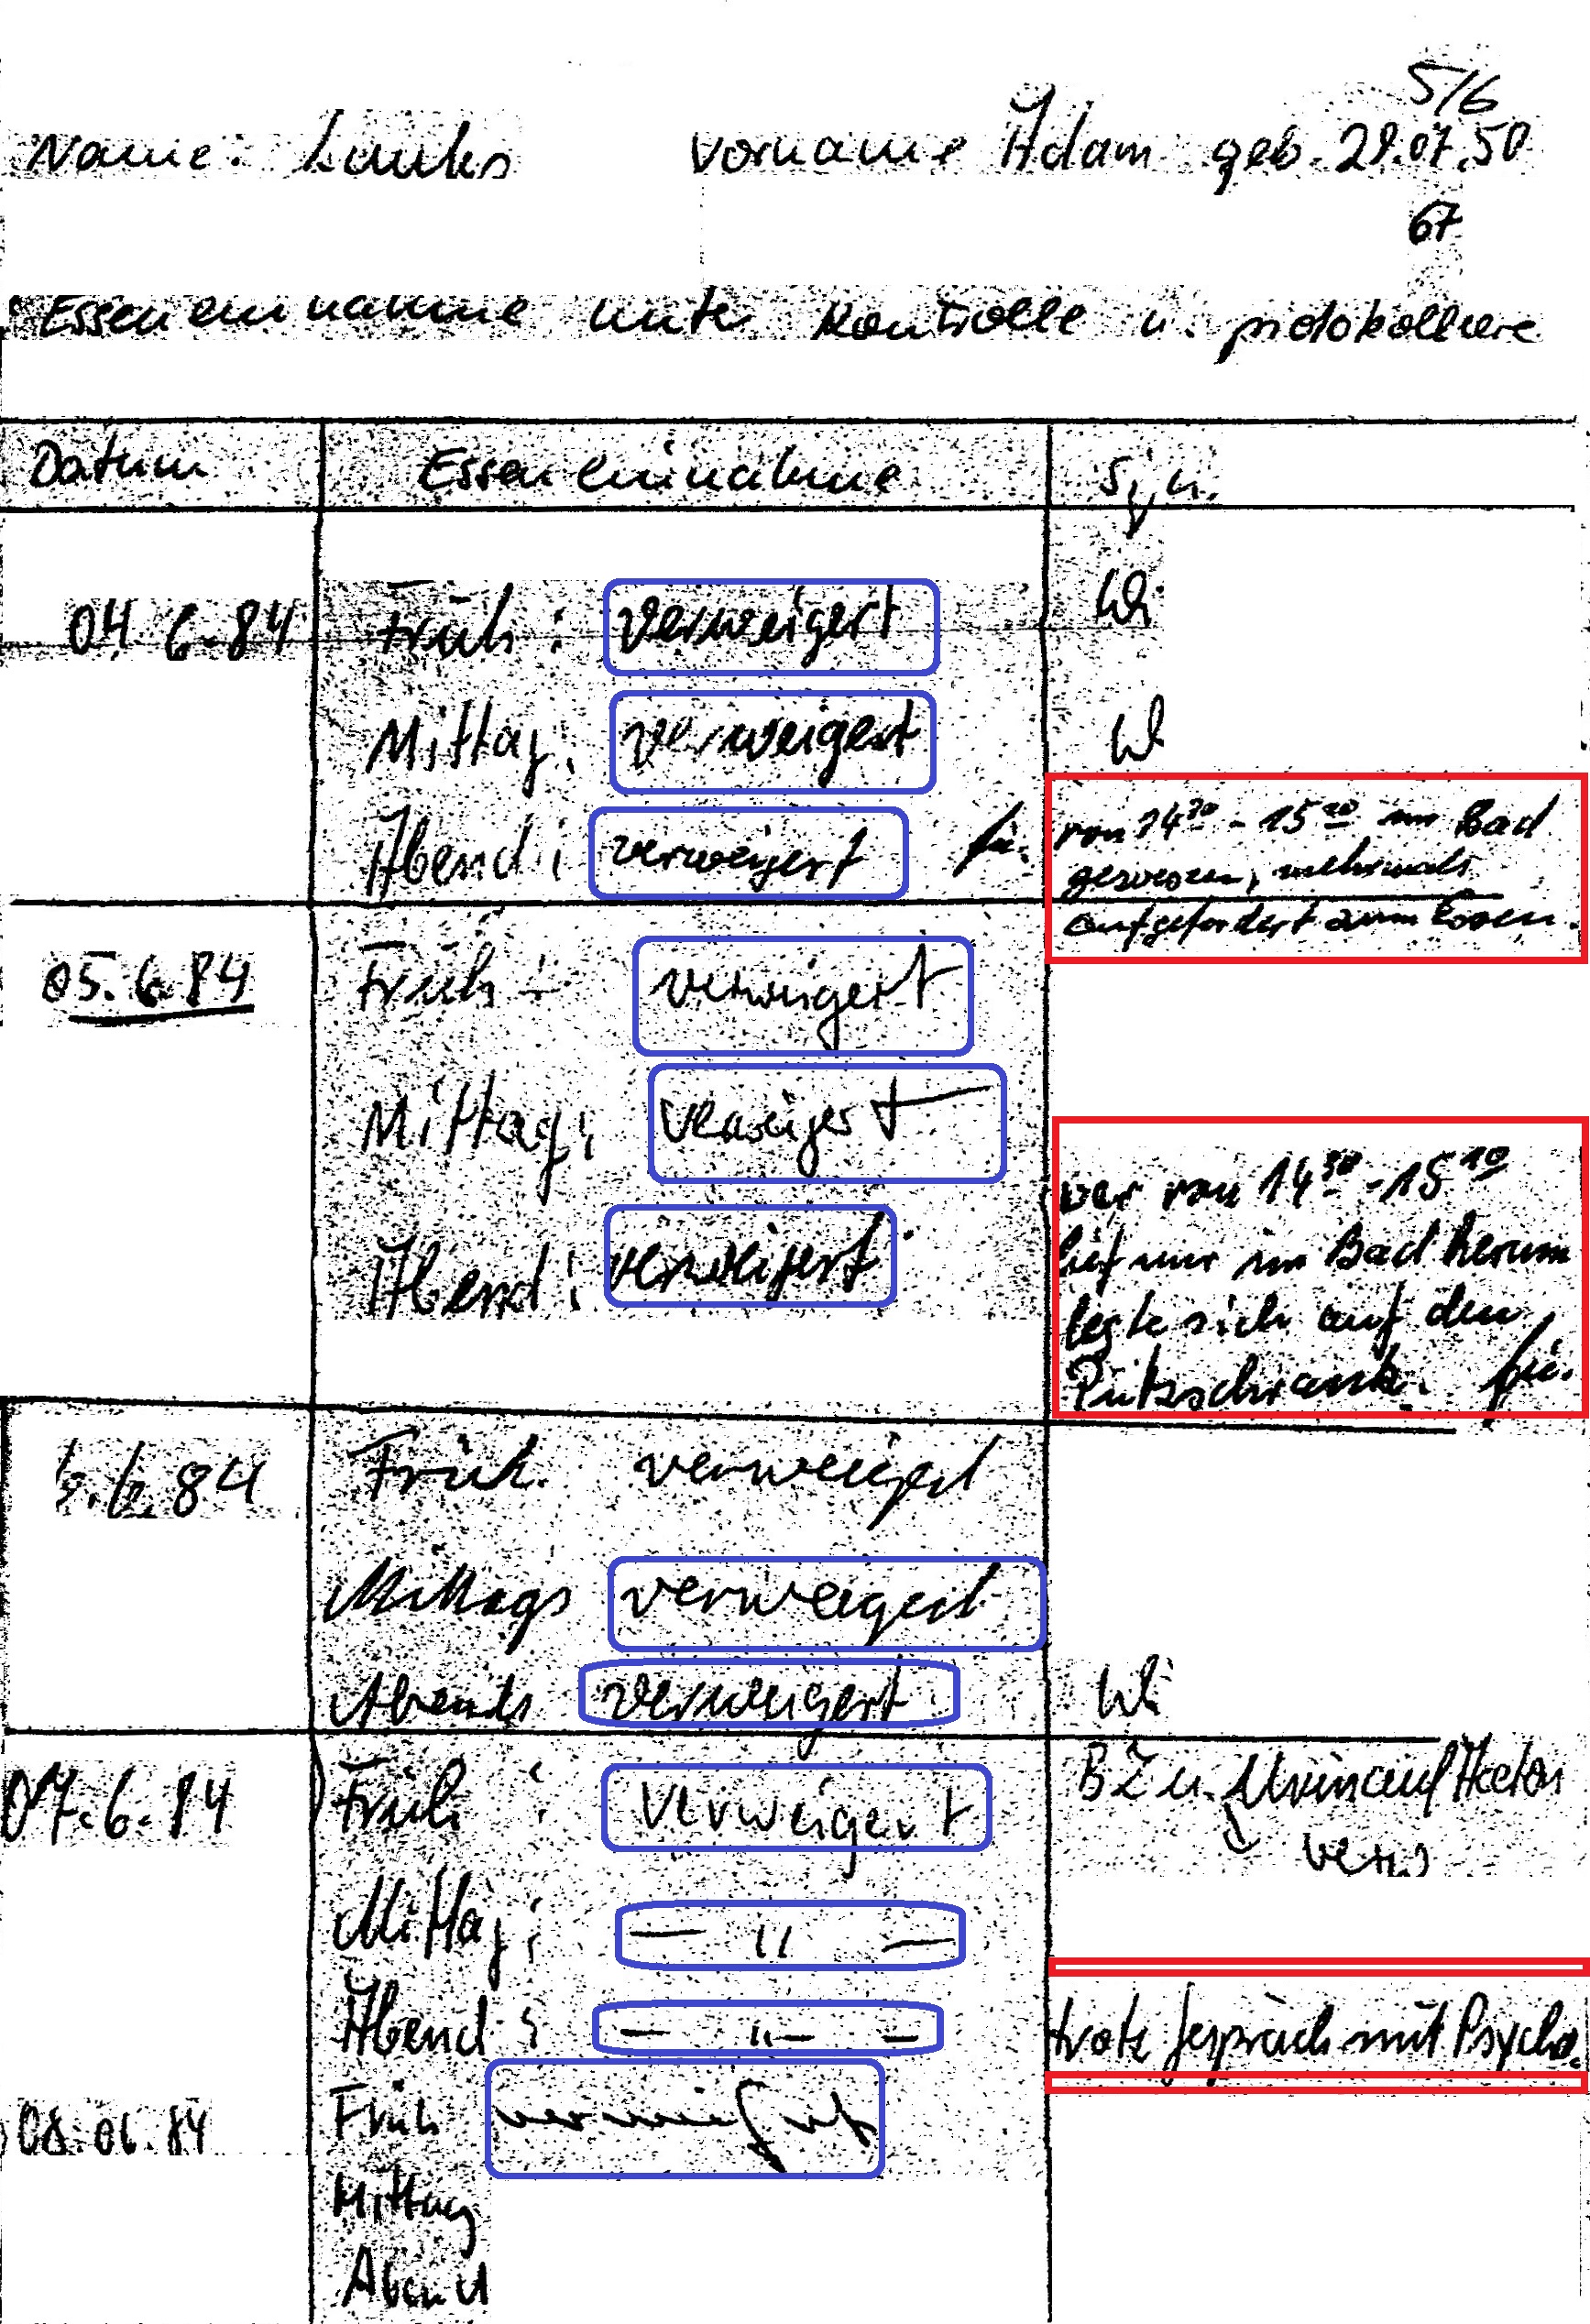 5/6
Name: Lauks Vorname Adam geb. 29.07.50
67
Esseneinnahme unter Kontrolle u. protokolliere
Datum Esseneinnahme Sign.
04.6.84 Früh: verweigert
Mittag: verweigert
Abend: verweigert
von 14³⁰ - 15²⁰ im Bad
gewesen, mehrmals
aufgefordert zum Essen.
05.6.84 Früh: verweigert
Mittag: verweigert
Abend: verweigert
war von 14³⁰ - 15¹⁰
lief nur im Bad herum
legte sich auf den
Putzschrank.
6.6.84 Früh. verweigert
Mittags verweigert
Abends verweigert
07.6.84 Früh: verweigert
BZ u. Urin auf Aceton
Mittag: — " —
Abend: — " — —
trotz Gespräch mit Psycho.
08.06.84 Früh verweigert
Mittag
Abend